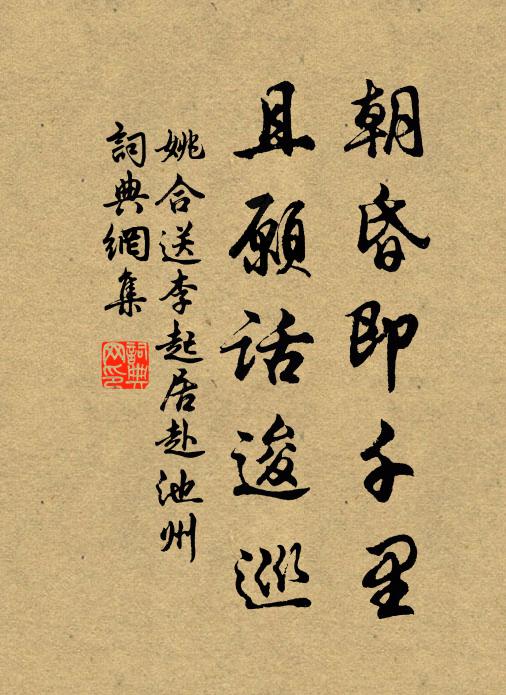 朝昏即千里
且願話逡巡
姚合送李起居赴池州
詞典網集
詞典网印